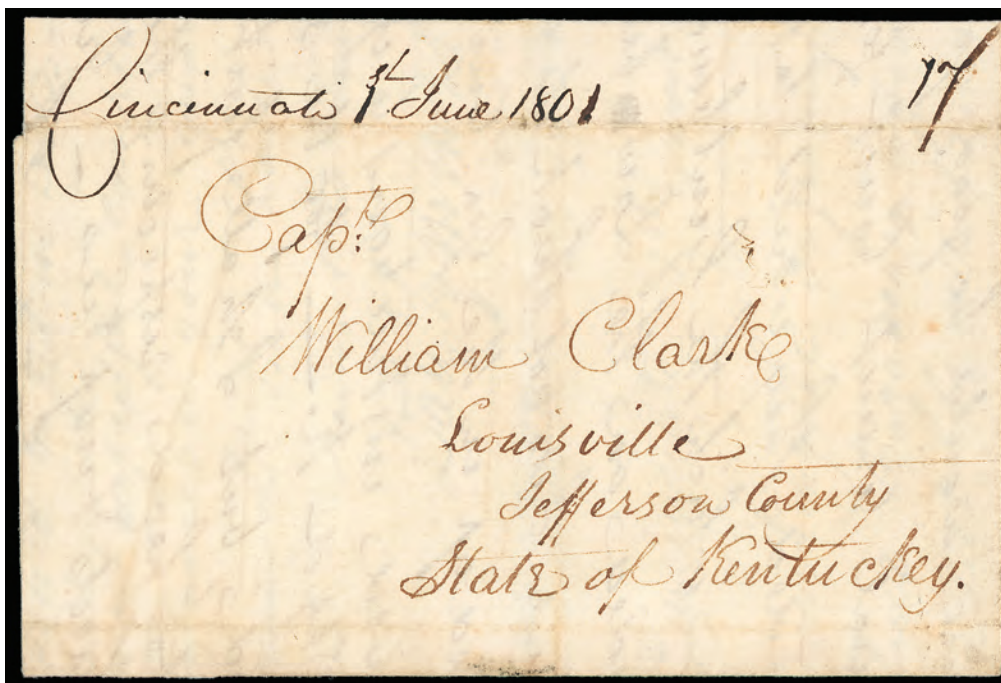 Cincinnati 1st June 1801 17/
Capt:
William Clark
Louisville
Jefferson County
State of Kentuckey.